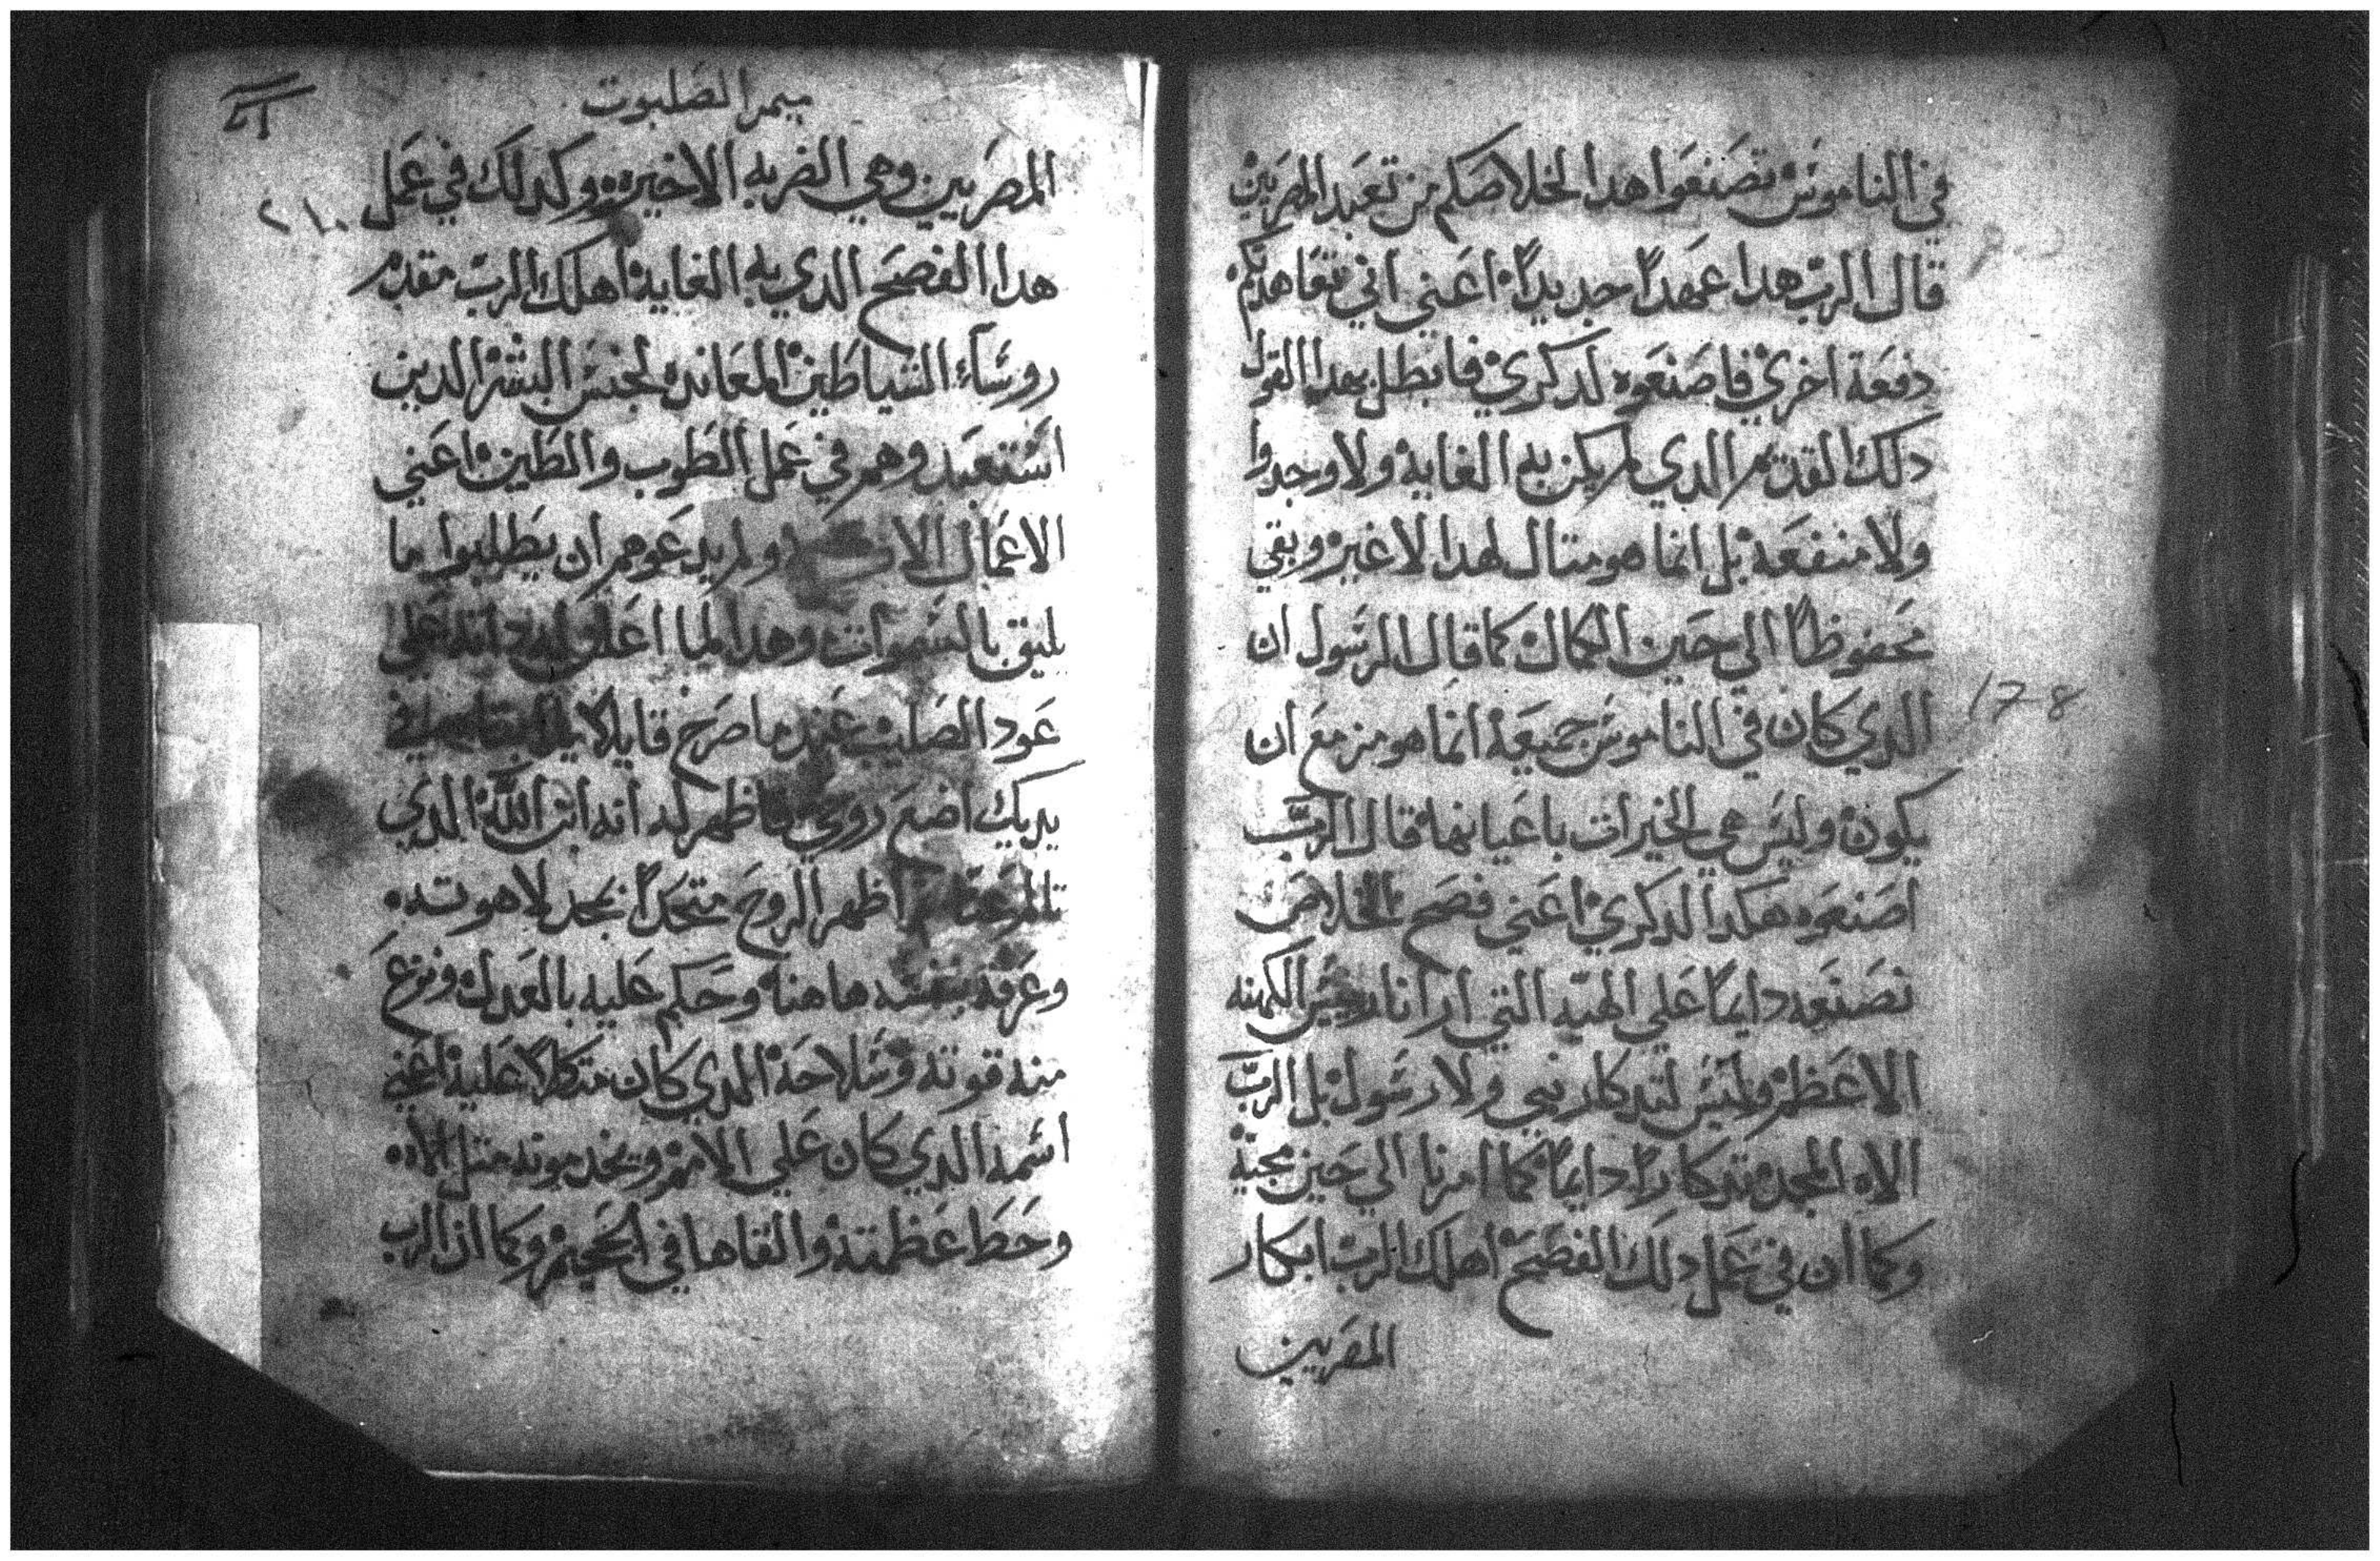 في الناموس تصنعوا هدا لخلاصكم من تعبد المصريين
قال الرب هدا عهداً جديداً اعني اني نتعاهدكم
دفعة اخري فاصنعوه لدكري فابطل بهدا القول
دلك القديم الدي لم يكن به الغايه ولا وجدوا
ولا منفعه بل انما هو متال لهدا لا غير وبقي
محفوظاً الي حين الكمال كما قال الرسول ان
الدي كان في الناموس جميعة انما هو مزمع ان
178
يكون وليس هي الخيرات باعيانها قال الرب
اصنعوه هكدا لدكري اعني فصح الخلاص
نصنعه دايماً علي الهيه التي ارانا رييس الكهنه
الاعظم وليس لتدكار نبي ولا رسول بل الرب
الاه المجد تدكاراً دايماً كما امرنا الي حين مجيه
وكما ان في عمل دلك الفصح اهلك الرب ابكار
المصريين
ميمر الصلبوت
المصريين وهي الضربه الاخيره وكدلك في عمل
هدا الفصح الدي به الغايه اهلك الرب مقدم
روساء الشياطين المعانده لجنس البشر الدين
استعبدوهم في عمل الطوب والطين اعني
الاعمال ولم يدعوهم ان يطلبوا ما
يليق بالسموات وهدا لما اعلق له داته علي
عود الصليب عندما صرخ قايلاً
يديك اضع روحي فاظهر له انه ابن الله الدي
تالم اظهر الروح متحداً بمجد لاهوته
وعرفه بنفسه هاهنا وحكم عليه بالعدل ونزع
منه قوته وسلاحه الدي كان متكلاً عليه اعني
اسمه الدي كان علي الامم موته متل الاه
وحط عظمته والقاها في الجحيم وكما ان الرب